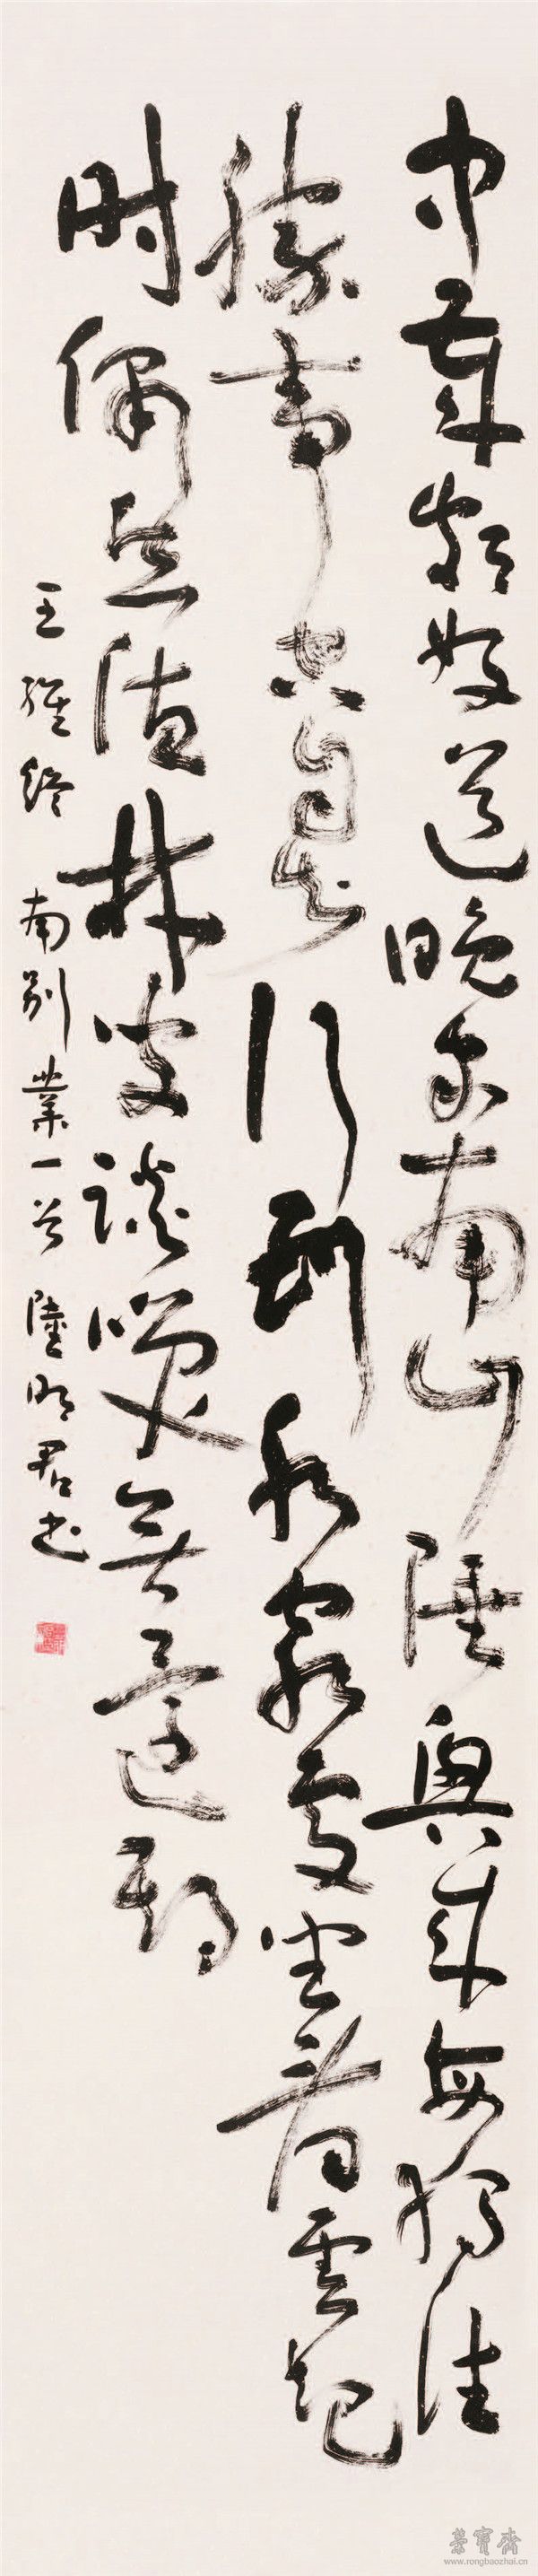 中歲頗好道晚家南山陲興來每獨往
勝事空自知行到水窮處坐看雲起
時偶然值林叟談笑無還期
王維終南別業一首 陸明君書
榮寶齋
www.rongbaozhai.cn